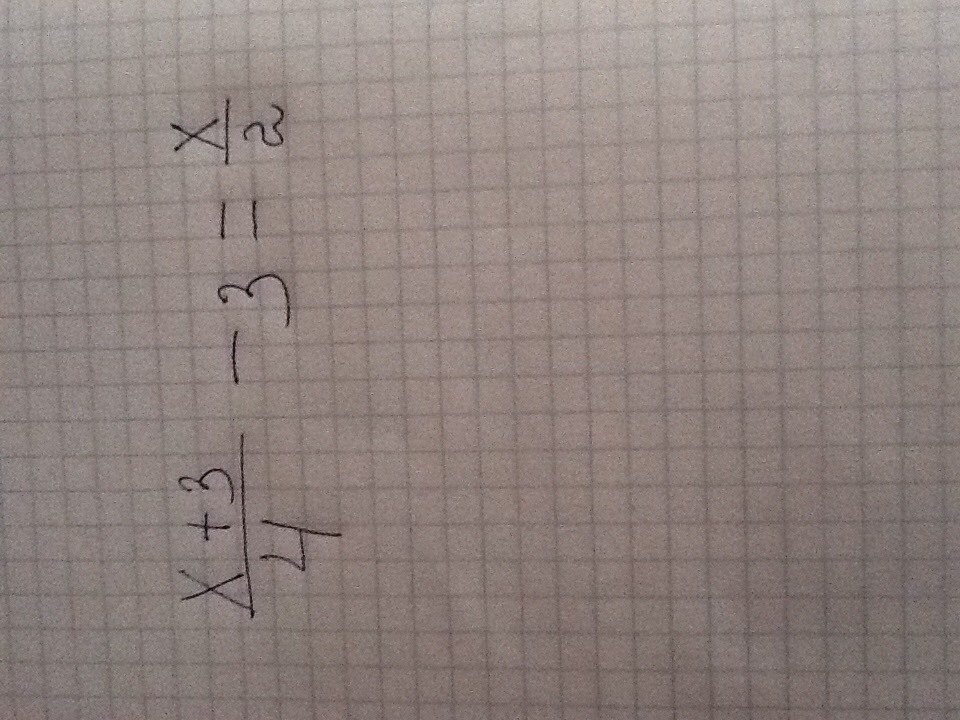 x + 3
4
- 3 =
x
2